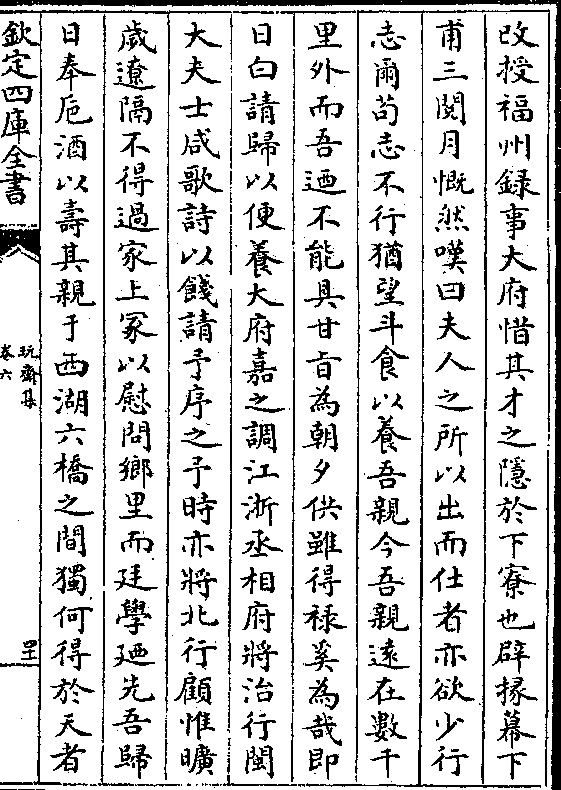 改授福州録事大府惜其才之隱於下寮也辟掾幕下
甫三閲月慨然嘆曰夫人之所以出而仕者亦欲少行
志爾茍志不行猶望斗食以養吾親今吾親逺在數千
里外而吾廼不能具甘旨為朝夕供雖得禄奚為哉即
日白請歸以便養大府嘉之調江浙丞相府將治行閩
大夫士咸歌詩以餞請予序之予時亦將北行顧惟曠
歳遼隔不得過家上冢以慰問鄉里而廷學廼先吾歸
日奉巵酒以夀其親于西湖六橋之間獨何得於天者
欽定四庫全書
玩齋集
卷六
四十